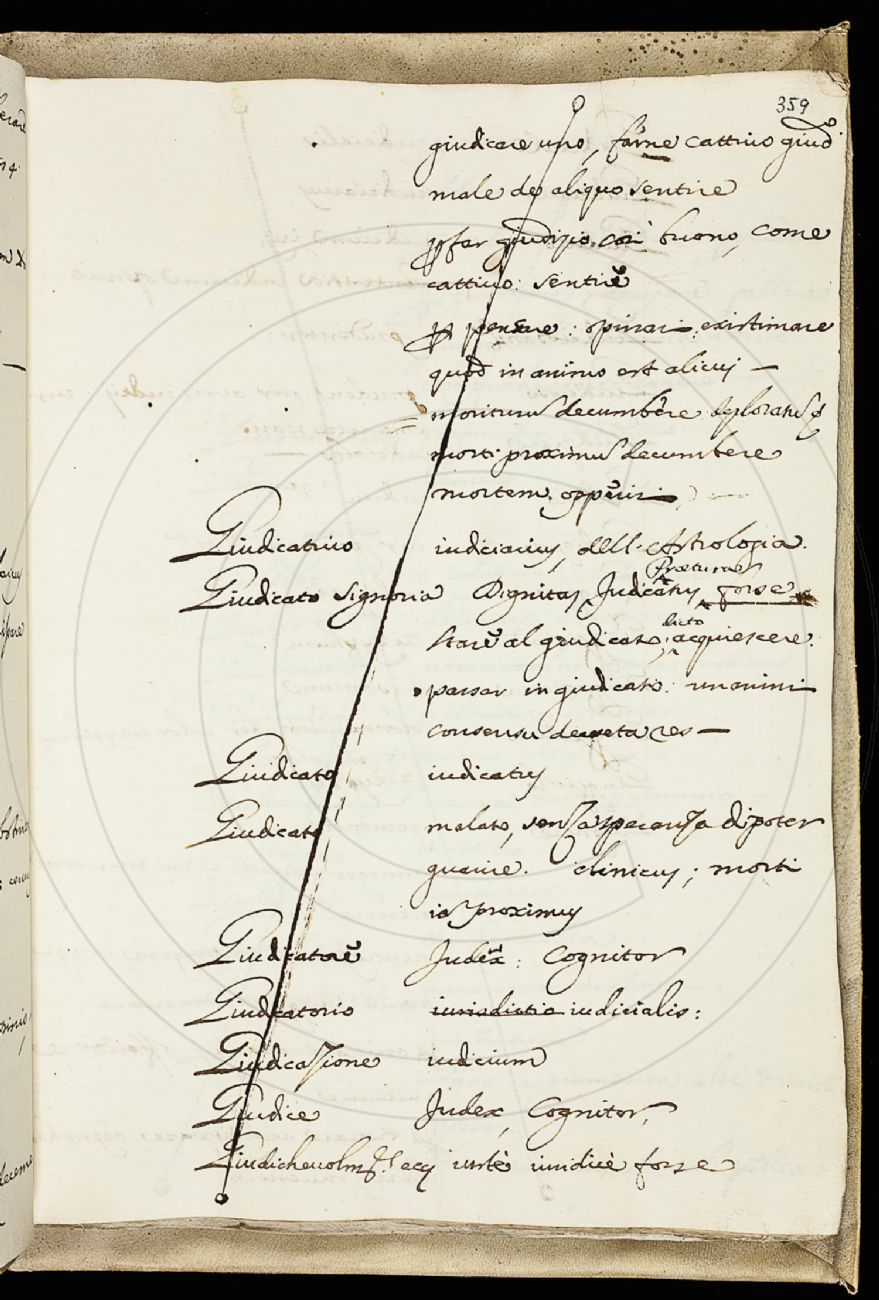 359
giudicare uno, farne cattiuo giud.
male de aliquo sentire
far giudizio, così buono, come
cattiuo: sentire
pensare: opinari: existimare
quod in animo est alicuj —
moriturus decumbere deploratus
morti proximus decumbere
mortem oppetiri
Giudicatiuo iudiciarius, dell'Astrologia.
Praetura
Giudicato signoria Dignitas, Judicatus, forse
dicto
Stare al giudicato: acquiescere:
passar in giudicato: unanimi
consensu decreta res —
Giudicato iudicatus
Giudicato malato, senza speranza di poter
guarire. clinicus; morti
iam proximus
Giudicatore Judex: Cognitor
Giudicatorio iurisdictio iudicialis:
Giudicazione iudicium
Giudice Judex, Cognitor,
iustè iuridicè forse